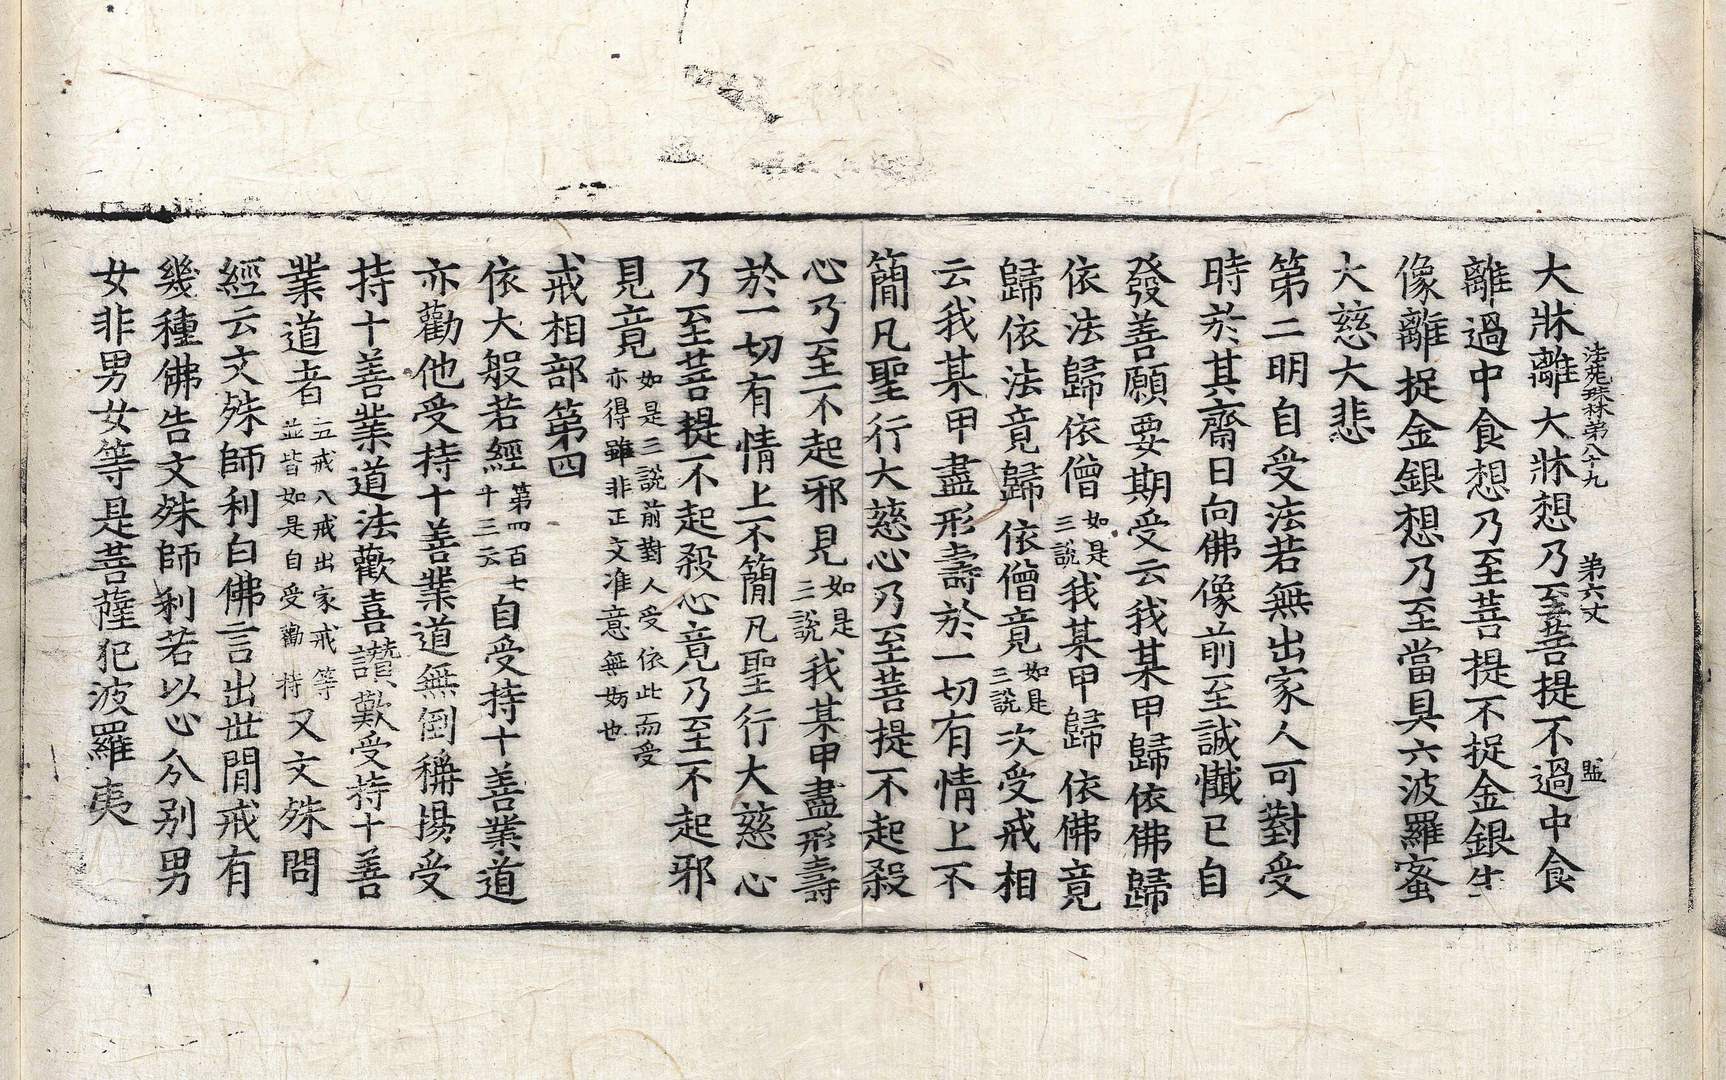 大牀離大牀想乃至菩提不過中食
法苑珠林第八十九 第六丈 監
離過中食想乃至菩提不捉金銀生
像離捉金銀想乃至當具六波羅蜜
大慈大悲
第二明自受法若無出家人可對受
時於其齋日向佛像前至誠懺已自
發善願要期受云我某甲歸依佛歸
依法歸依僧如是三說我某甲歸依佛竟
歸依法竟歸依僧竟如是三說次受戒相
云我某甲盡形壽於一切有情上不
簡凡聖行大慈心乃至菩提不起殺
心乃至不起邪見如是三說我某甲盡形壽
於一切有情上不簡凡聖行大慈心
乃至菩提不起殺心竟乃至不起邪
見竟如是三說前對人受依此而受亦得雖非正文准意無妨也
戒相部第四
依大般若經第四百七十三云自受持十善業道
亦勸他受持十善業道無倒稱揚受
持十善業道法歡喜讚歎受持十善
業道者五戒八戒出家戒等並皆如是自受勸持又文殊問
經云文殊師利白佛言出世間戒有
幾種佛告文殊師利若以心分別男
女非男女等是菩薩犯波羅夷